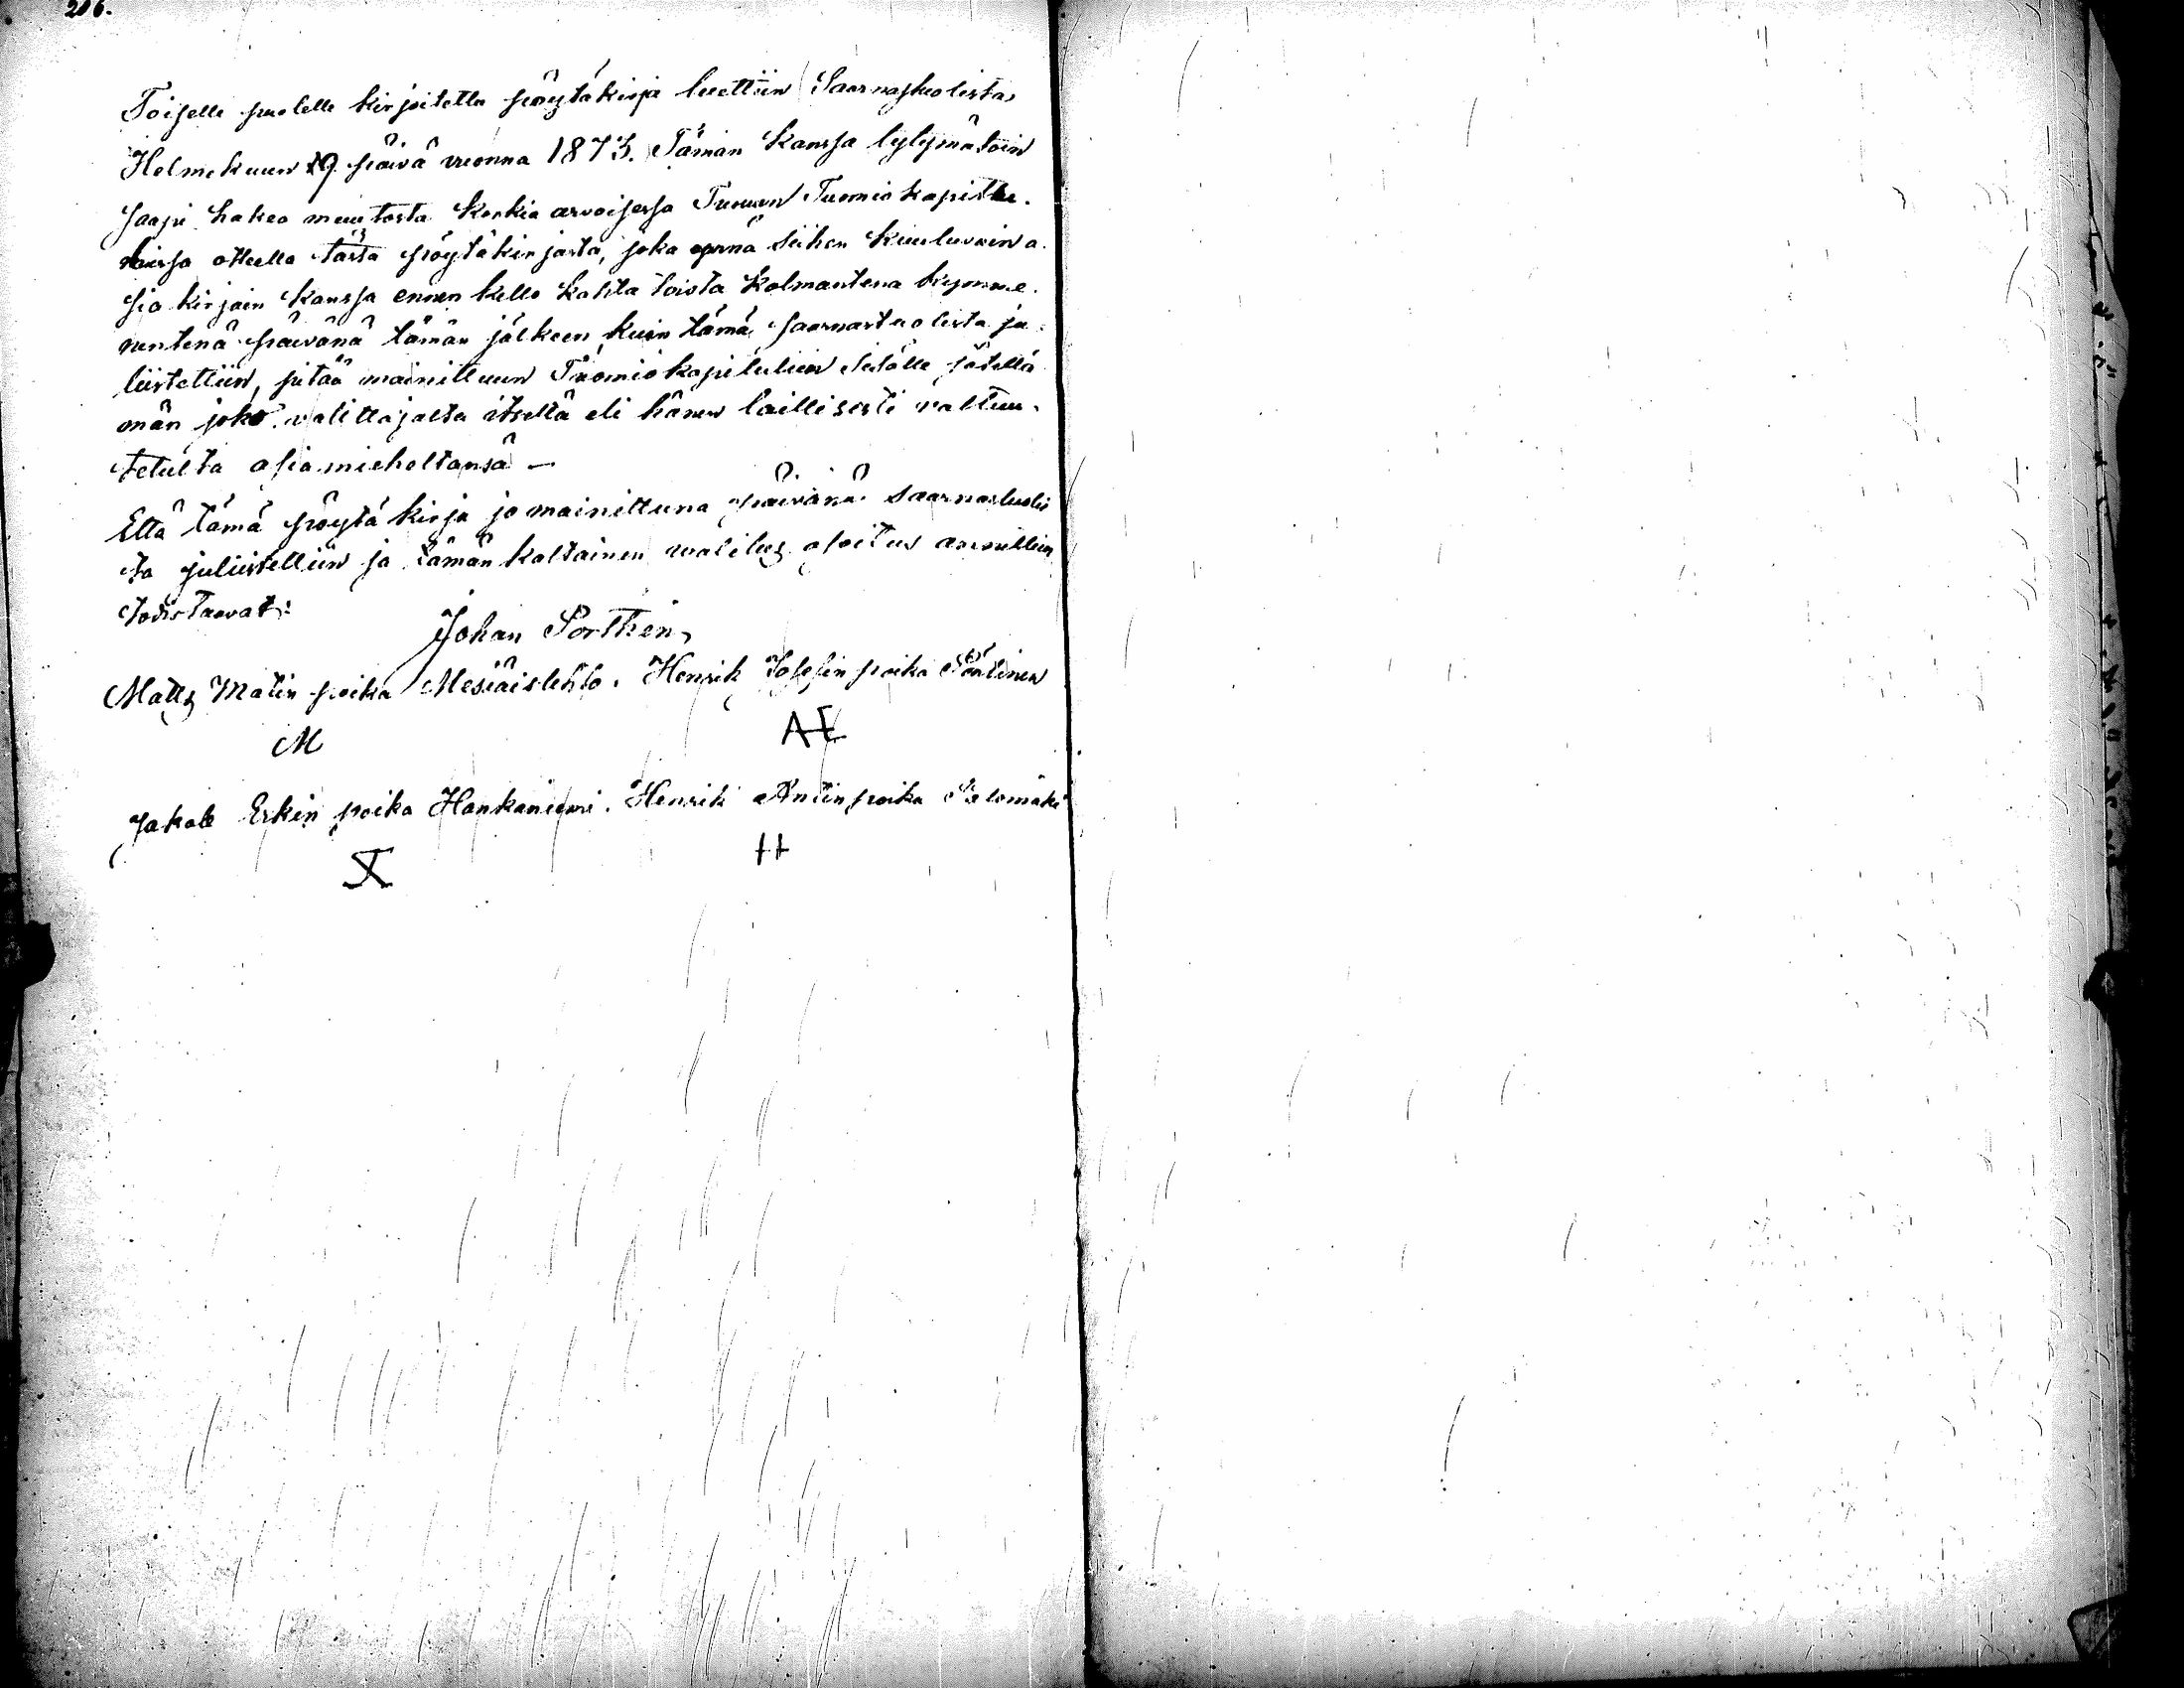 206.
Toiselle puolelle kirjoitettu pöytäkirja luettiin Saarnastuolista
Helmekuun 19 päivä vuonna 1873. Tämän kanssa tytymätöin
saapi hakea muutosta korkia arvoisessa Turuun Tuomiokapittu-
otteella tästä pöytäkirjasta, joka ynnä siihen kuuluvain a-
sia kirjain kanssa ennen kello kahta toista kolmantena kymme-
nentenä päivänä tämän jälkeen, kuin tämä saarnastuolista ju-
liistettiin, pitää mainittuun Tuomiokapituliin sisälle jätettä-
män joko valittajalta itseltä eli hänen laillisesti valtuu-
tetulta asiamieheltänsä —
Että tämä pöytäkirja jo mainittuna päivänä saarnastuolis
ta juliistettiin ja tämän kaltainen valitus osoitus annettiin
todistaavat:
Johan Porthen,
Matts Matin poika Mesiäislehto. Henrik Josefin poika
M
AE
Jakob Erkin poika Hankaniemi. Henrik Antin poika
X
H